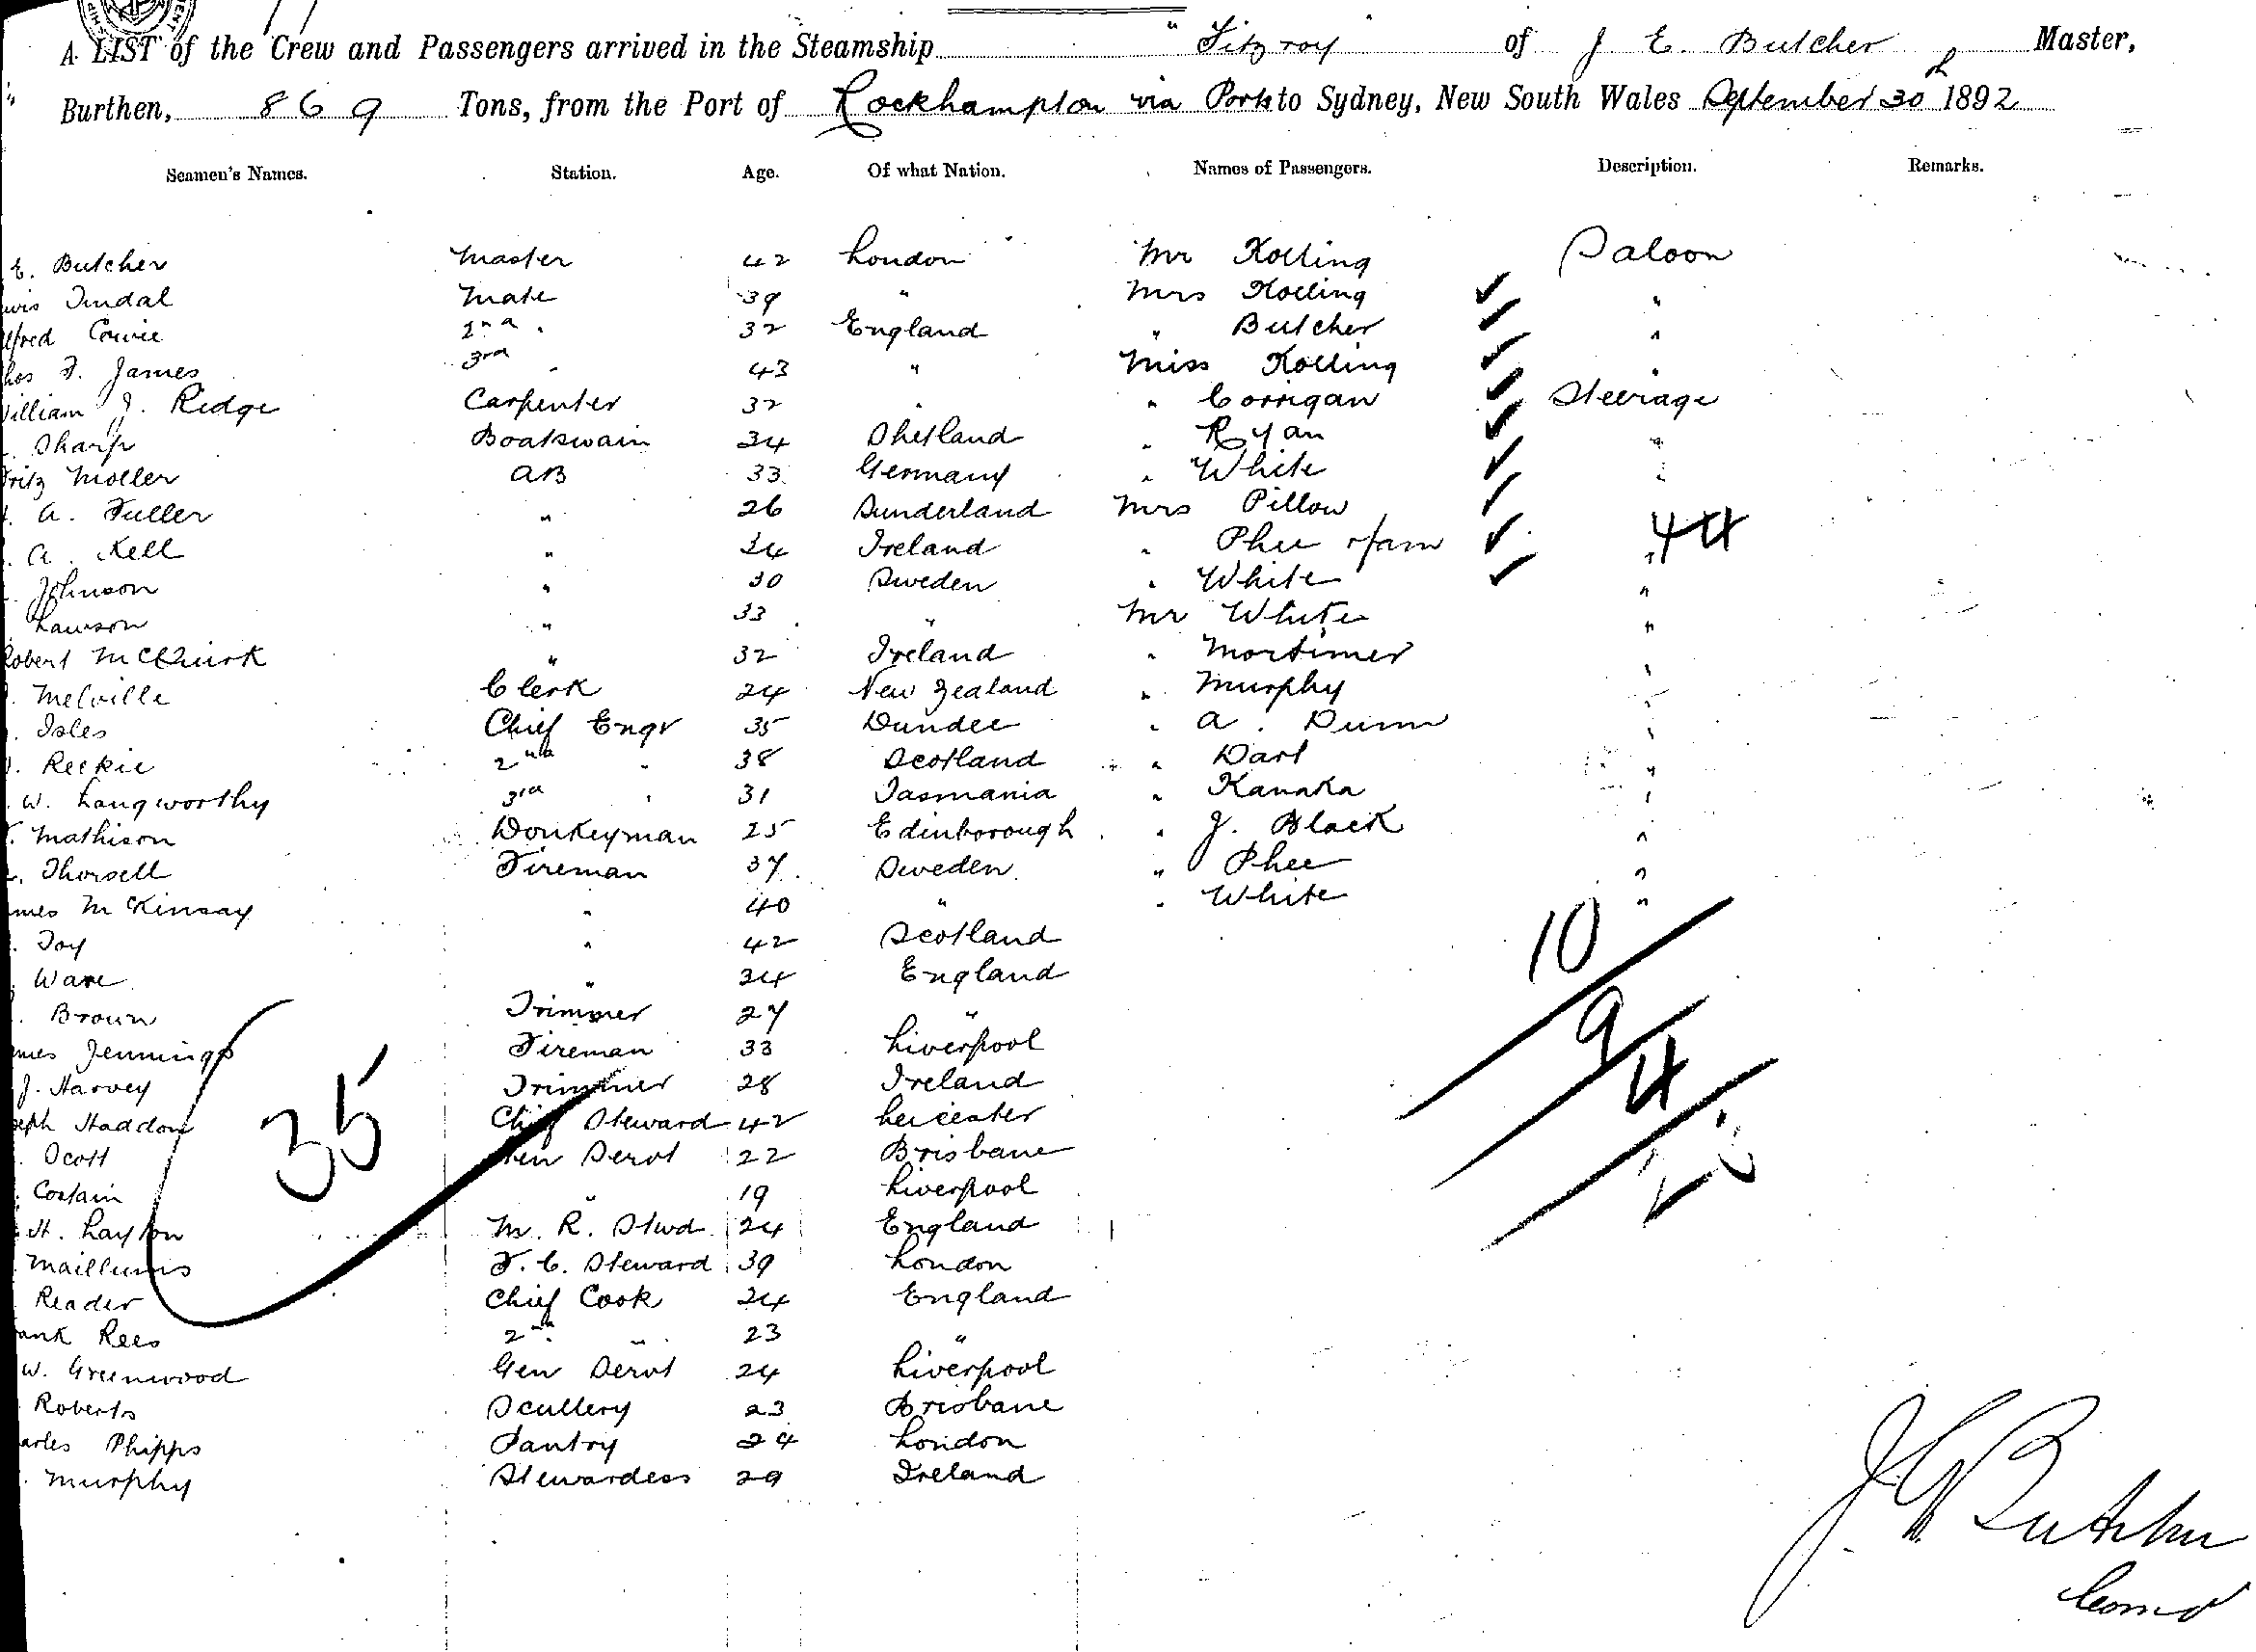 A LIST of the Crew and Passengers arrived in the Steamship "Fitzroy of J E. Butcher Master,
Burthen, 869 Tons, from the Port of Rockhampton via Ports to Sydney, New South Wales September 30th 1892
Seamen's Names. Station. Age. Of what Nation. Names of Passengers. Description. Remarks.
E. Butcher Master 42 London Mr Kolling Saloon
Tindal Mate 39 " Mrs Kolling "
Cowie 2nd " 32 England " Butcher "
hos F. James 3rd " 43 " Miss Kolling "
William J. Ridge Carpenter 32 " " Corrigan Steerage
Sharp Boatswain 34 Shetland " Ryan "
Fritz Moller AB 33 Germany " White "
A. Fuller " 26 Sunderland Mrs Pillow
A. Kell " 34 Ireland " Phee " 44
Johnson " 30 Sweden " White "
Lawson " 33 " Mr White "
Robert McQuirk " 32 Ireland " Mortimer "
Melville Clerk 24 New Zealand " Murphy "
Isles Chief Engr 35 Dundee " A. Dunn "
Reekie 2nd " 38 Scotland " Dart "
W. Langworthy 3rd " 31 Tasmania " Kanaka "
Mathison Donkeyman 25 Edinborough " J. Black "
Thorsell Fireman 37 Sweden " Phee "
ames McKinsay " 40 " " White "
Toy " 42 Scotland 10
Ware " 34 England
Brown Trimmer 27 " 9
ames Jennings Fireman 33 Liverpool 4
J. Harvey Trimmer 28 Ireland
seph Haddon Chief Steward 42 Leicester
35
Scott Gen Servt 22 Brisbane
Costain " 19 Liverpool
H. Layton M. R. Stwd 24 England
Maillums F. C. Steward 39 London
Reader Chief Cook 24 England
ank Rees 2nd " 23 "
W. Greenwood Gen Servt 24 Liverpool
Roberts Scullery 23 Brisbane
arles Phipps Pantry 24 London
Murphy Stewardess 29 Ireland
J E Butcher